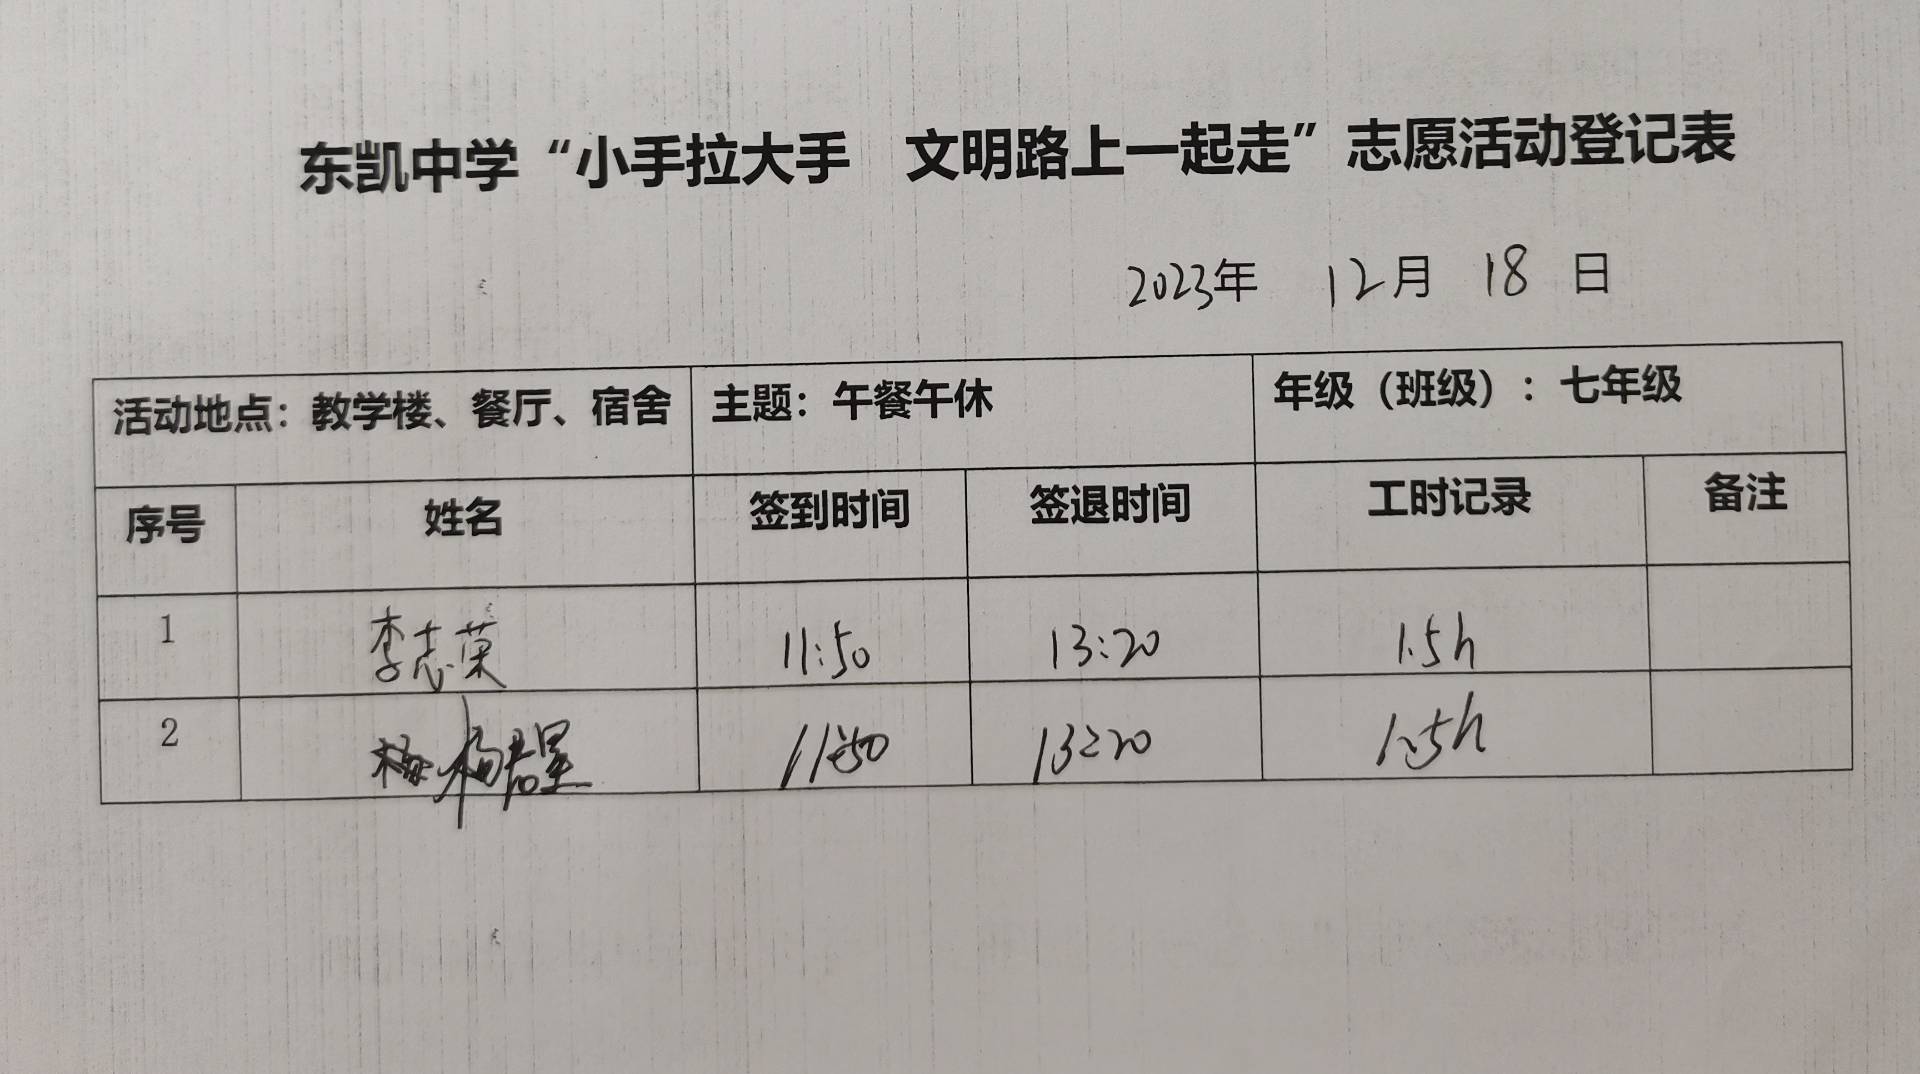 东凯中学“小手拉大手 文明路上一起走”志愿活动登记表
2023年 12月 18 日
活动地点：教学楼、餐厅、宿舍 主题：午餐午休 年级（班级）：七年级
序号 姓名 签到时间 签退时间 工时记录 备注
1 李志荣 11:50 13:20 1.5h
2 11:50 13:20 1.5h